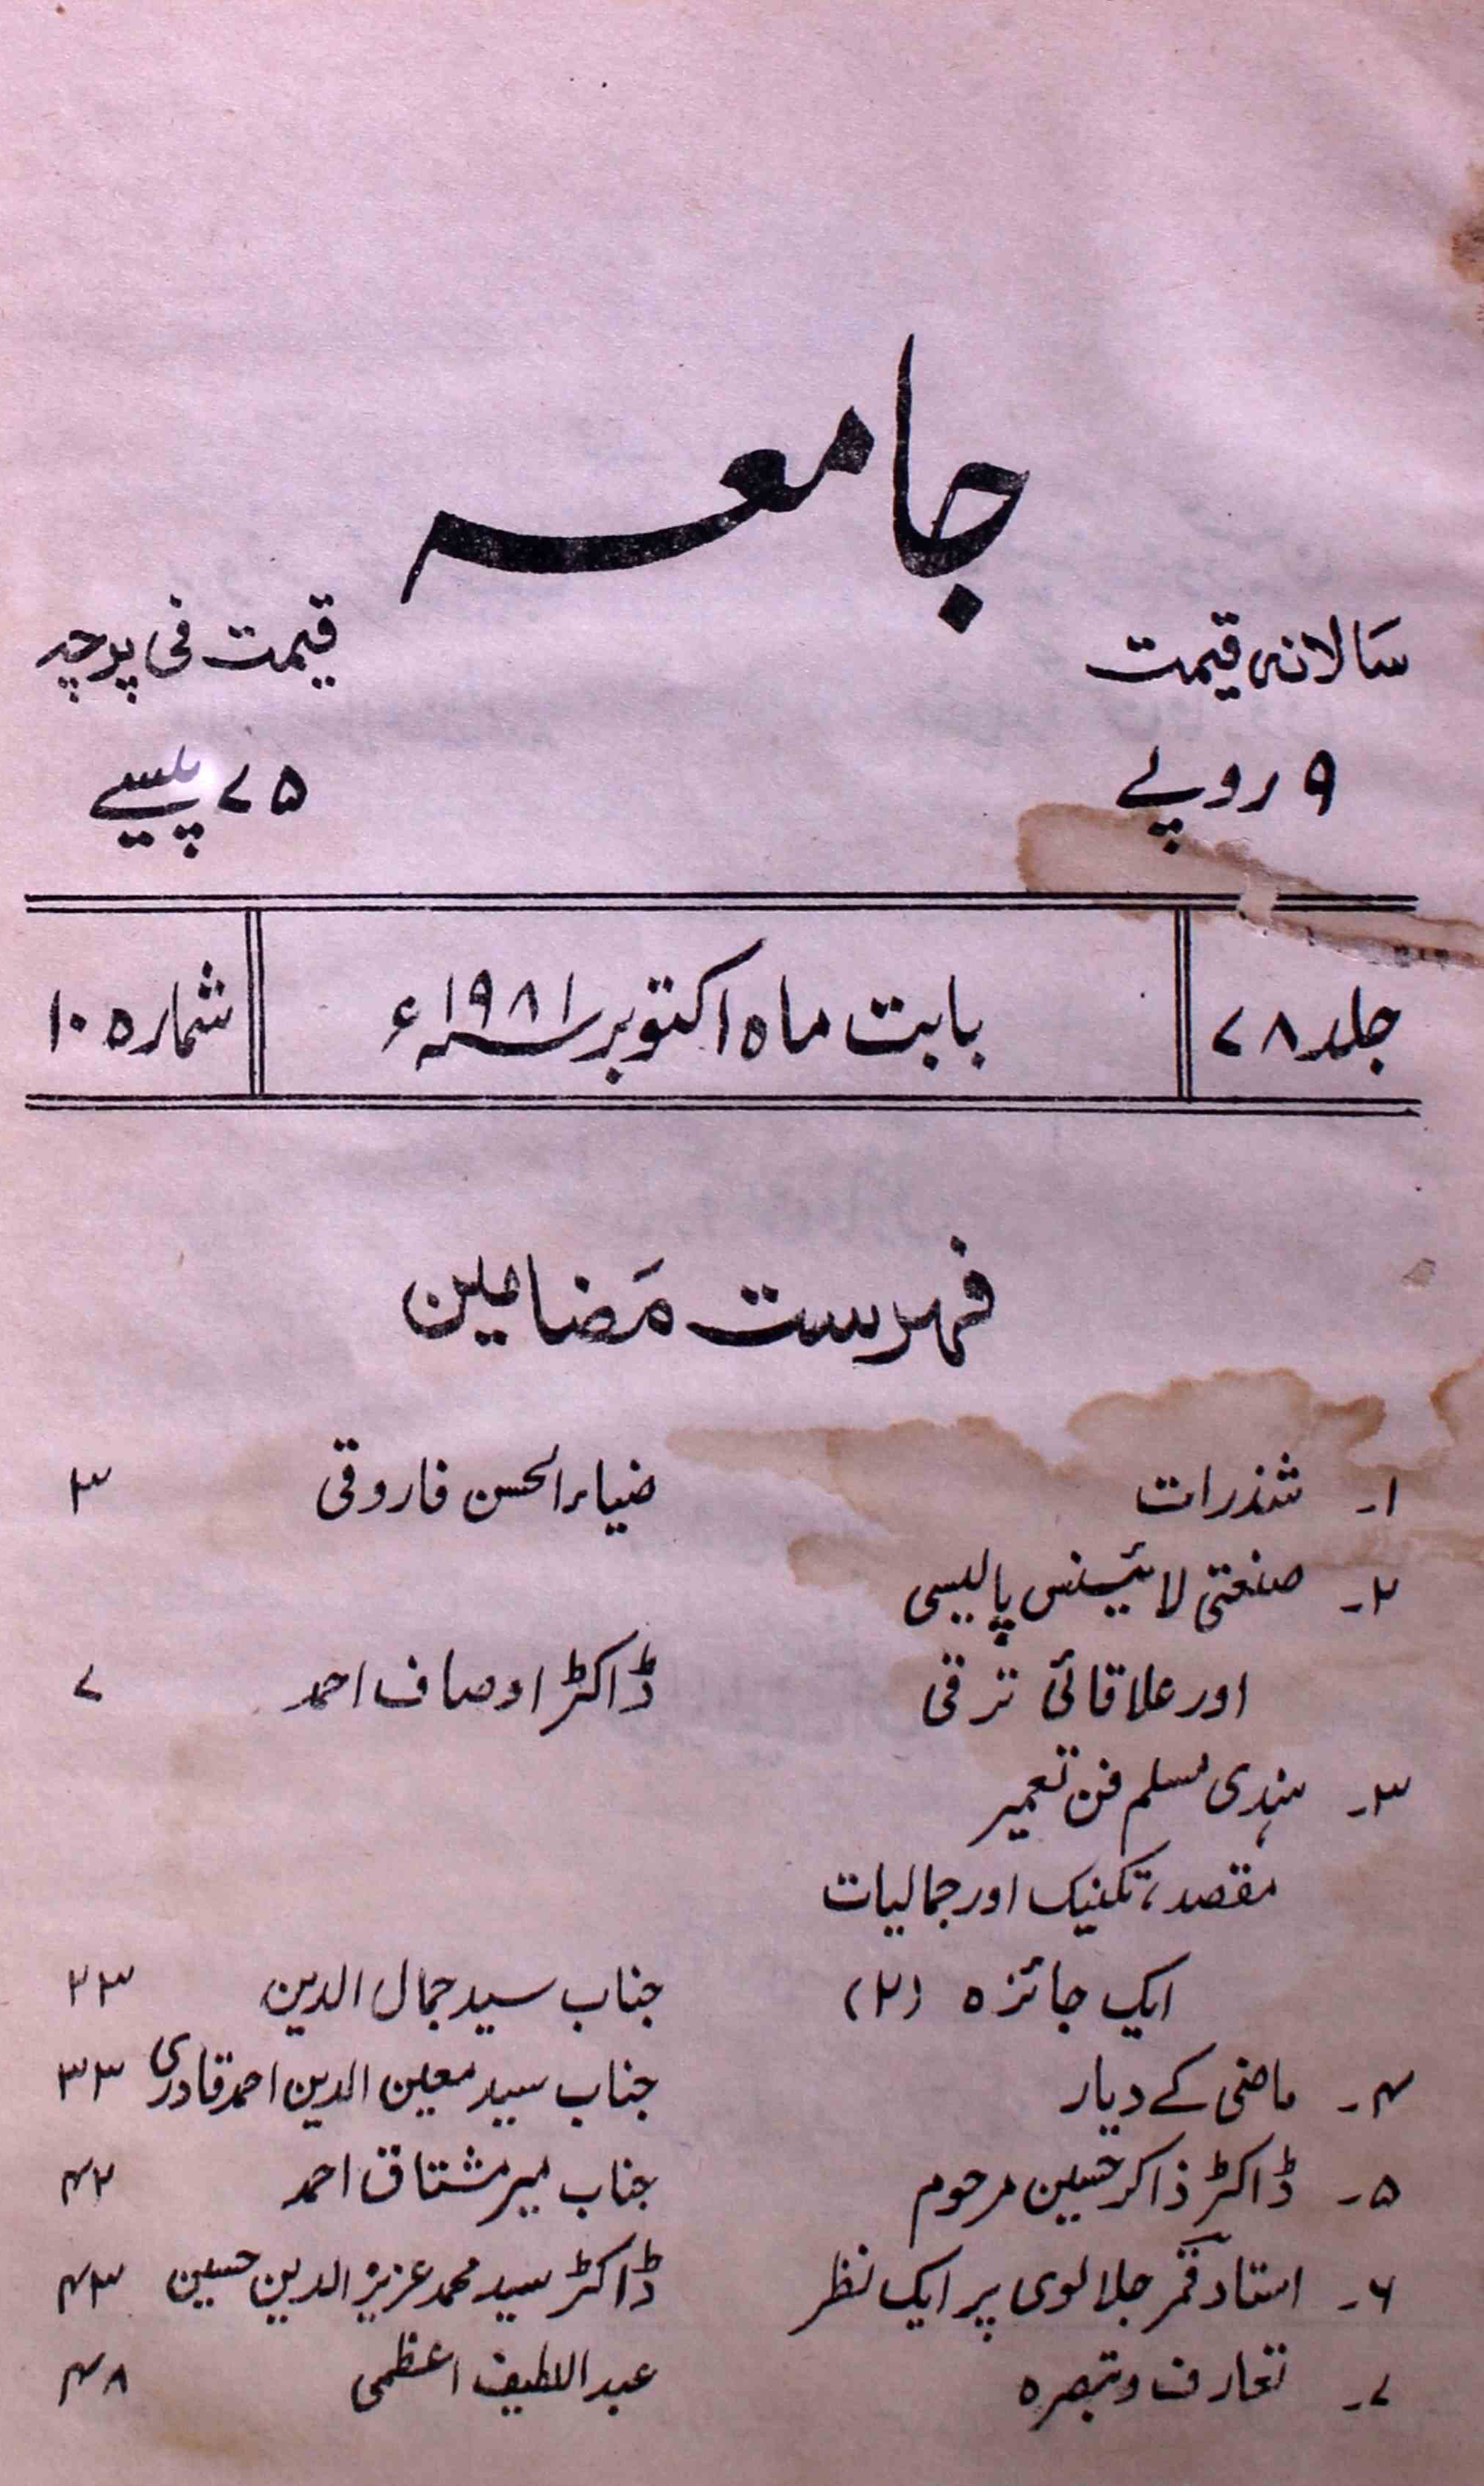 جامعہ
سالانہ قیمت
قیمت فی پرچہ
۹ روپے
۷۵ پیسے
جلد ۷۸
بابت ماہ اکتوبر ۱۹۸۱ء
شمارہ ۱۰
فہرست مضامین
۱۔ شذرات ضیاء الحسن فاروقی ۳
۲۔ صنعتی لائیسنس پالیسی
اور علاقائی ترقی ڈاکٹر اوصاف احمد ۷
۳۔ ہندی مسلم فن تعمیر
مقصد، تکنیک اور جمالیات
ایک جائزہ (۲) جناب سید جمال الدین ۲۳
۴۔ ماضی کے دیار جناب سید معین الدین احمد قادری ۳۳
۵۔ ڈاکٹر ذاکر حسین مرحوم جناب میر مشتاق احمد ۴۲
۶۔ استاد قمر جلالوی پر ایک نظر ڈاکٹر سید محمد عزیز الدین حسین ۴۳
۷۔ تعارف و تبصرہ عبد اللطیف اعظمی ۴۸